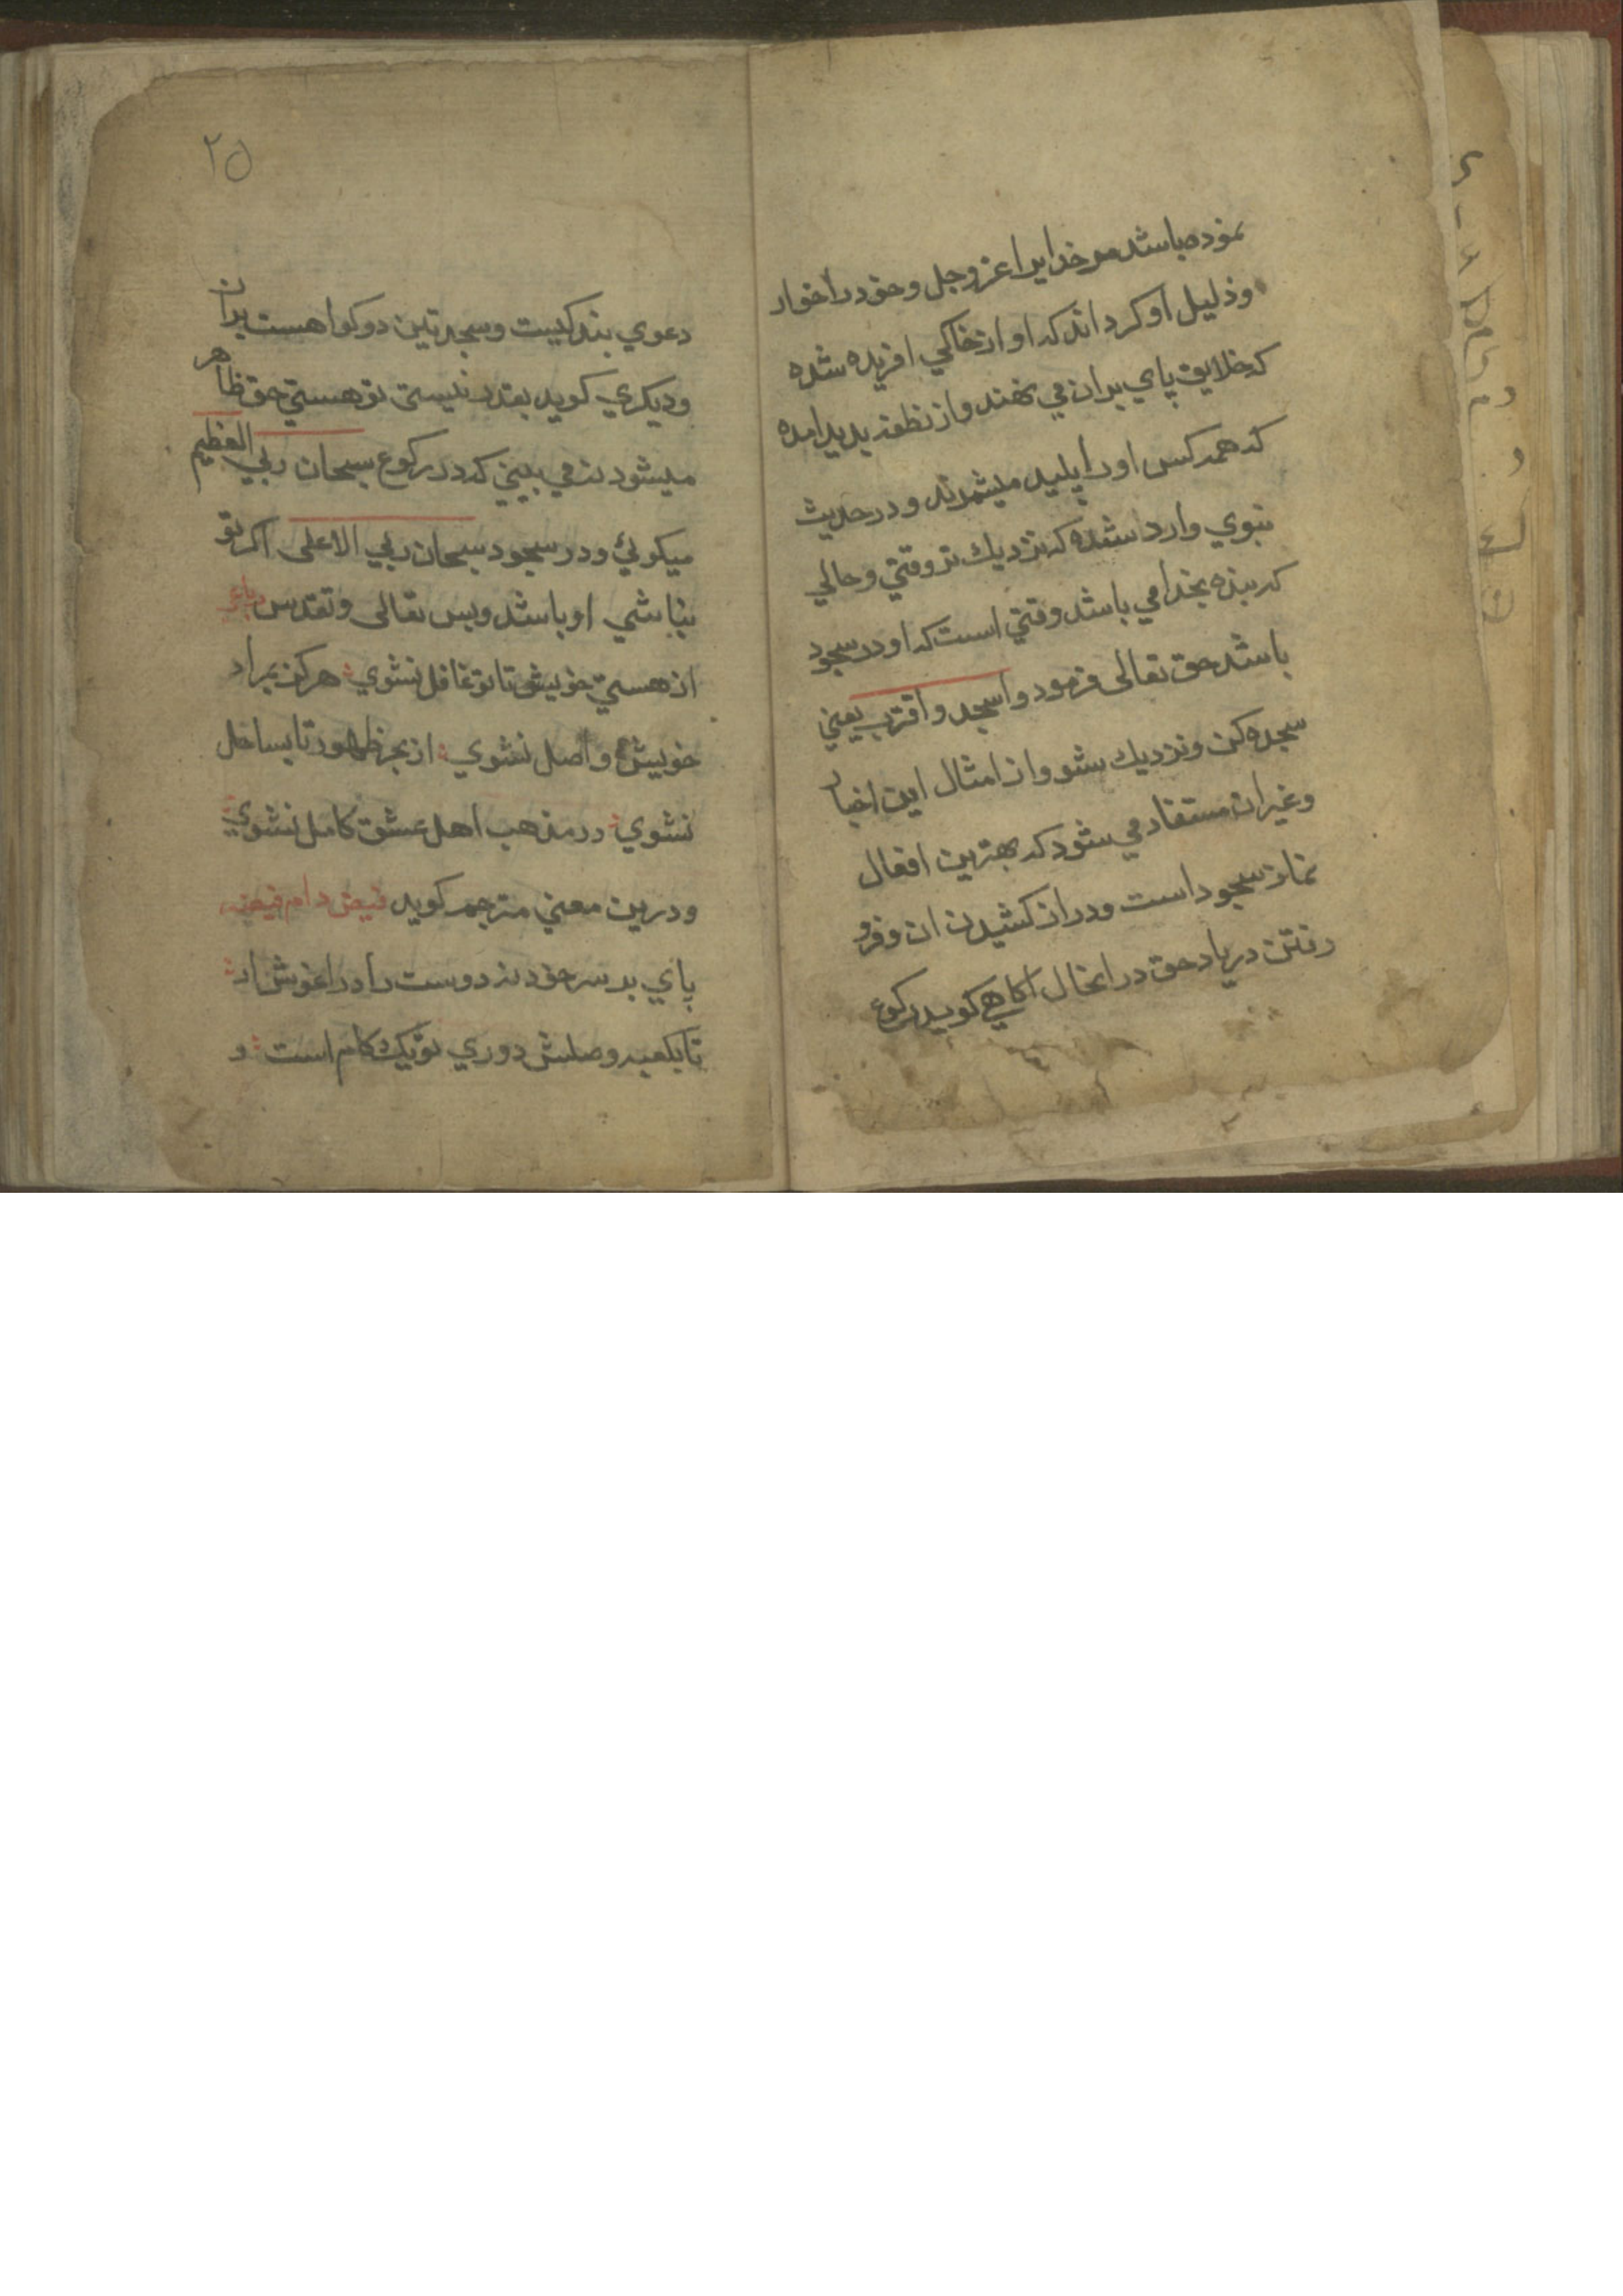 نموده باشد مر خدايرا عز وجل وخود را خوار
وذليل او كرداند كه او از خاكي افريده شده
كه خلايق پاي بران مي نهند واز نطفه پديد امده
كه همه كس اورا پليد ميشمرند ودر حديث
نبوي وارد شده كه نزديك تر وقتي وحالي
كه بنده بخدا مي باشد وقتي است كه او در سجود
باشد حق تعالى فرمود واسجد واقترب يعني
سجده كن ونزديك شو واز امثال اين اخبار
وغير ان مستفاد مي شود كه بهترين افعال
نماز سجود است ودراز كشيدن ان وفرو
رفتن در ياد حق در انحال اكاهي كويد ركوع
٢٥
دعوي بندكيست وسجدتين دو كواهست بران
وديكري كويد بقدر نيستى تو هستي حق ظاهر
ميشود نه مي بيني كه در ركوع سبحان ربي العظيم
ميكوئي ودر سجود سبحان ربي الاعلى اكر تو
نباشي او باشد وبس تعالى وتقدس رباعي
از هستي خويش تا تو غافل نشوي هركز بمراد
خويش واصل نشوي از بحر ظهور تا بساحل
نشوي در مذهب اهل عشق كامل نشوي
ودرين معني مترجم كويد فيض دام فيضه
پاي بر سر خود نه دوست را در اغوش ار
تا بكعبه وصلش دوري تو يك كام است و